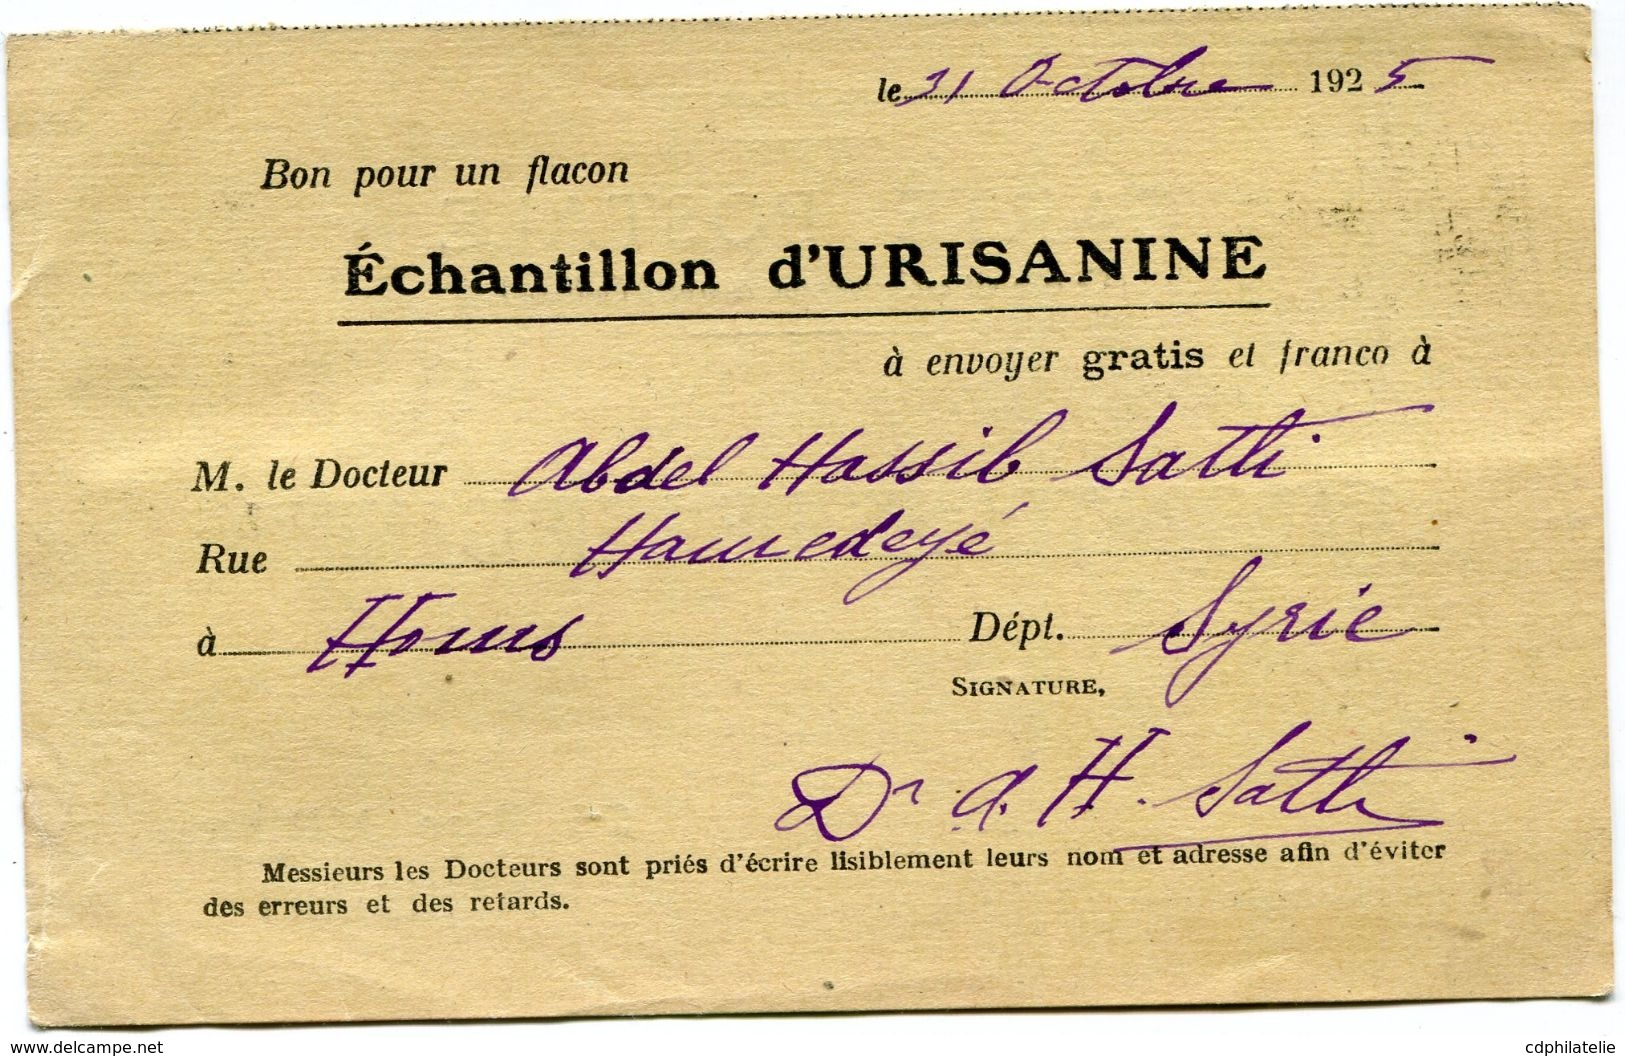 le 31 Octobre 1925
Bon pour un flacon
Échantillon d'URISANINE
à envoyer gratis et franco à
M. le Docteur Abdel Hassib Satli
Rue Hamedeyé
à Homs Dépt. Syrie
SIGNATURE,
Dr A. H. Satli
Messieurs les Docteurs sont priés d'écrire lisiblement leurs nom et adresse afin d'éviter
des erreurs et des retards.
www.delcampe.net
cdphilatelie